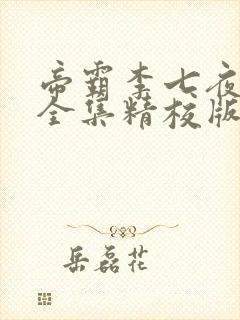 帝霸李七夜
全集精校版
岳磊花